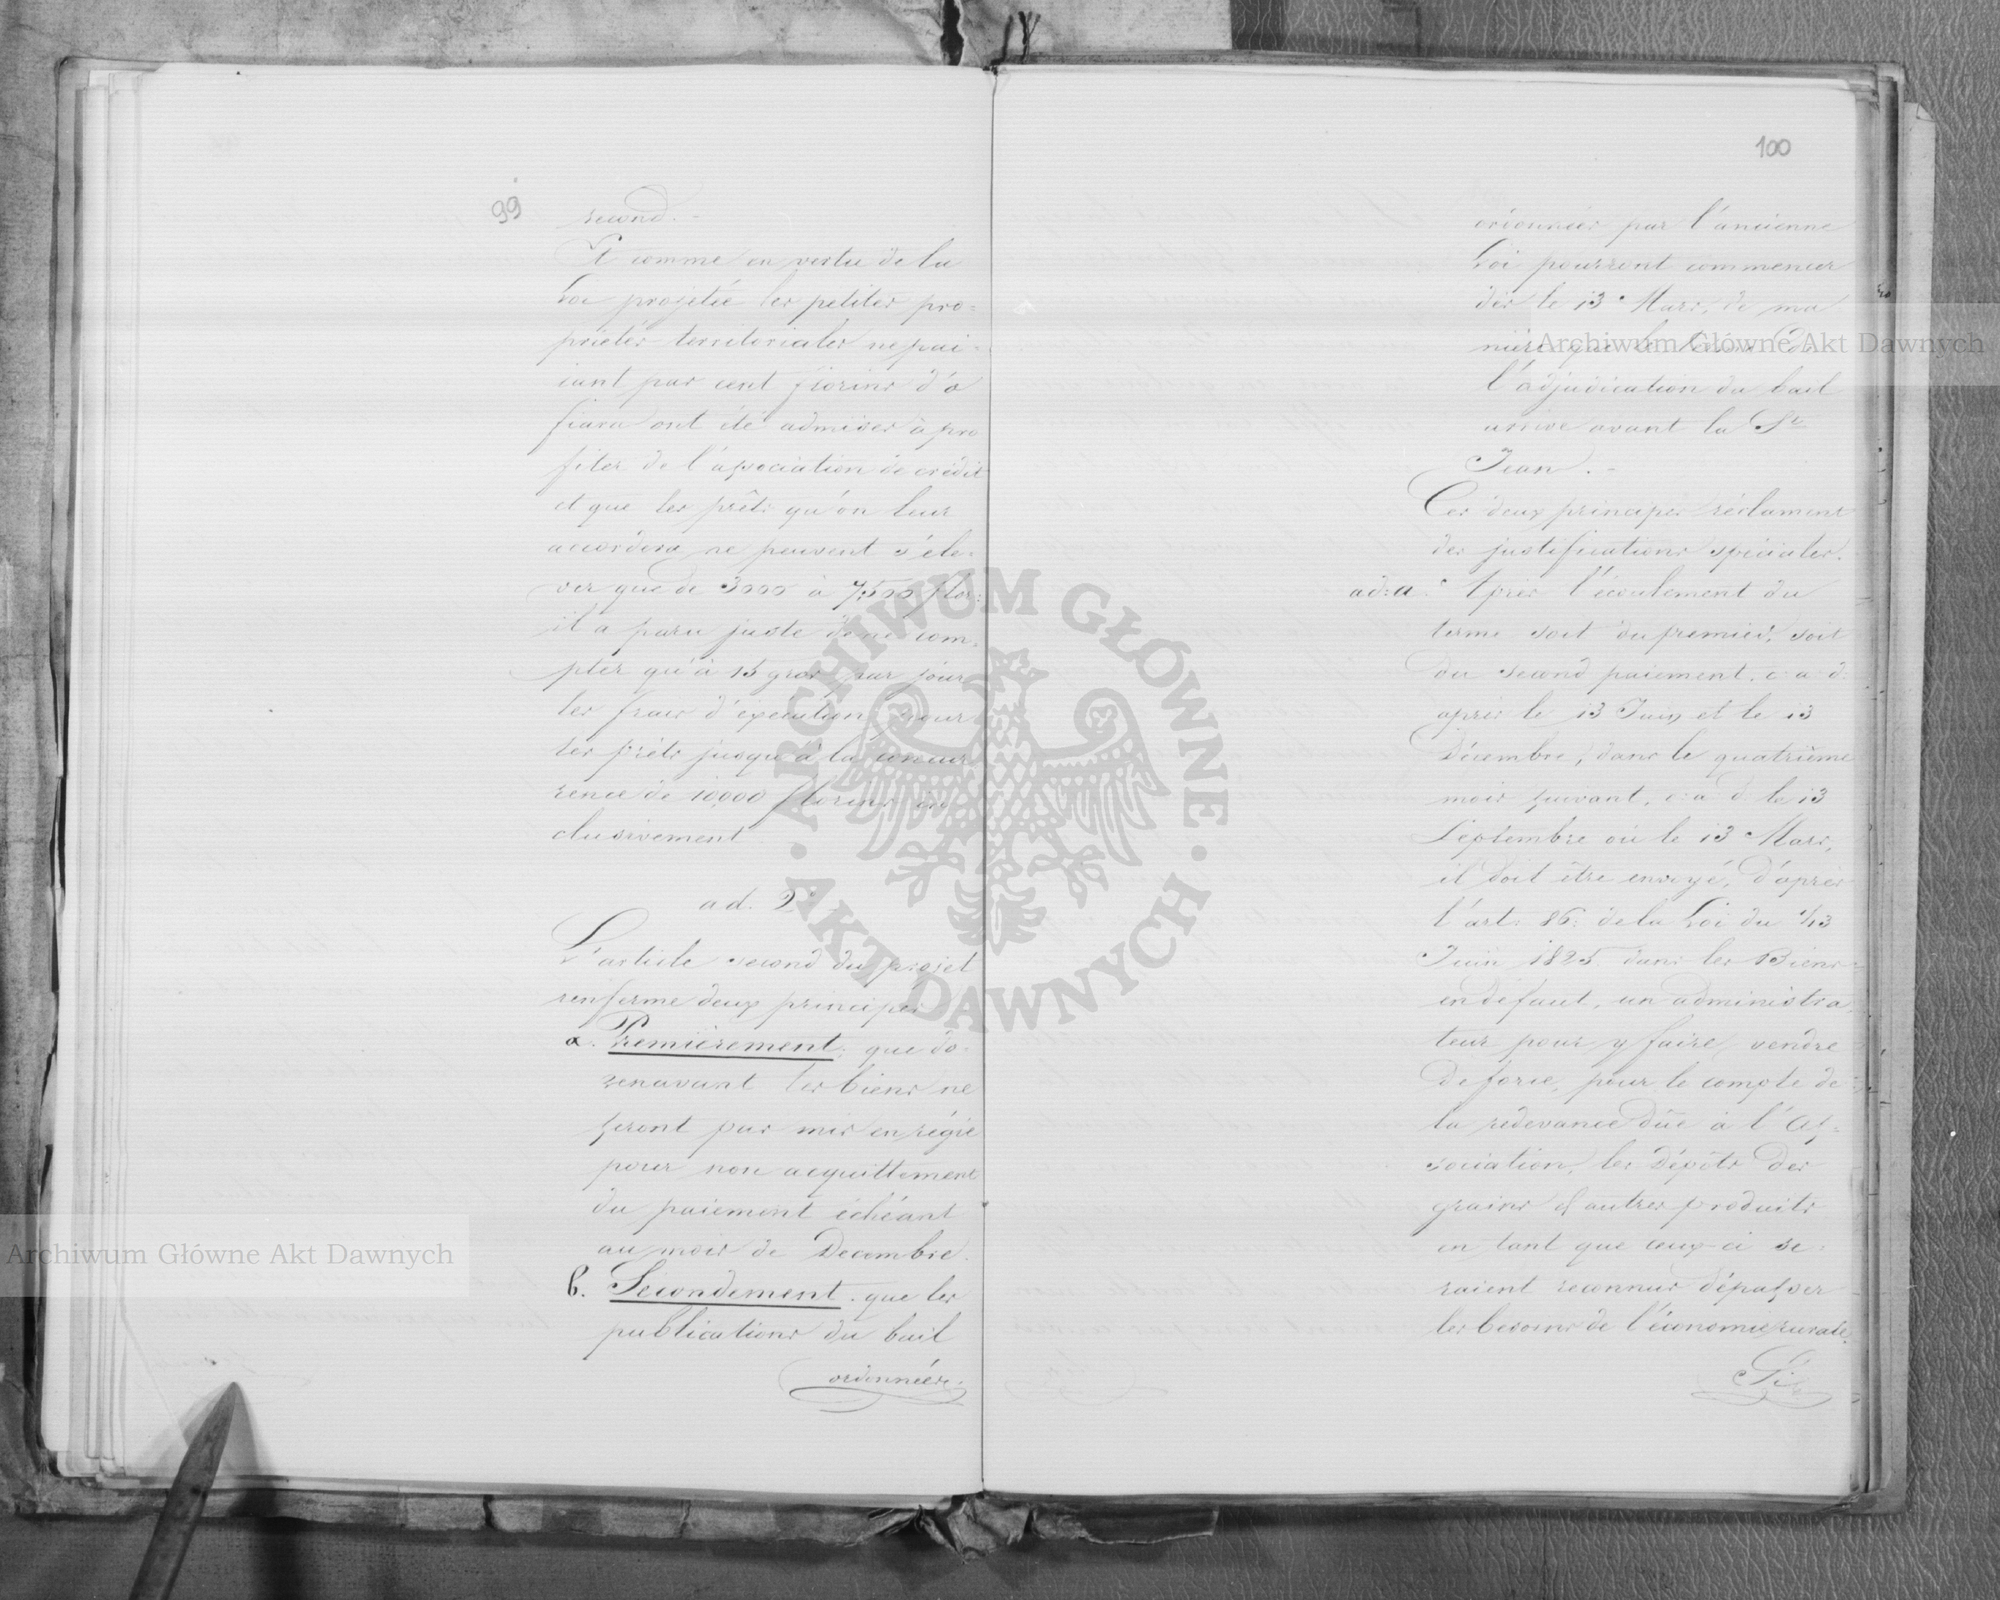 99
second. -
Et comme en vertu de la
Loi projetée les petites pro=
priétés territoriales ne pai=
iant pas cent florins d'o
fiara ont été admises à pro
fiter de l'association de crédit
et que les prêts qu'on leur
accordera ne peuvent s'éle=
ver que de 3000 à 7500 flor:
il a paru juste de ne com=
pter qu'à 15 gros par jour
les frais d'exécution pour
les prêts jusqu'à la concur
rence de 10,000 florins in
clusivement
ad. 2°
L'article second du projet
renferme deux principes
a. Premièrement: que do=
renavant les biens ne
seront pas mis en régie
pour non acquittement
du paiement échéant
au mois de Decembre.
b. Secondement. que les
publications du bail
ordonnées.
100
ordonnées par l'ancienne
Loi pourront commencer
dès le 13 Mars, de ma
nière que le terme de
l'adjudication du bail
arrive avant la St
Jean. -
Ces deux principes réclament
des justifications spéciales.
ad: a. Après l'écoulement du
terme soit du premier, soit
du second paiement. c. a. d:
après le 13 Juin et le 13
Décembre, dans le quatrième
mois suivant, c. a d. le 13
Septembre où le 13 Mars,
il doit être envoyé, d'après
l'art: 86: de la Loi du 1/13
Juin 1825 dans les Biens
en défaut, un administra
teur pour y faire vendre
de force, pour le compte de
la redevance dûe à l'As=
sociation, les dépôts des
grains et autres produits
en tant que ceux-ci se=
raient reconnus dépasser
les besoins de l'économie rurale.
Si
Archiwum Główne Akt Dawnych
Archiwum Główne Akt Dawnych
· ARCHIWUM GŁÓWNE · AKT DAWNYCH